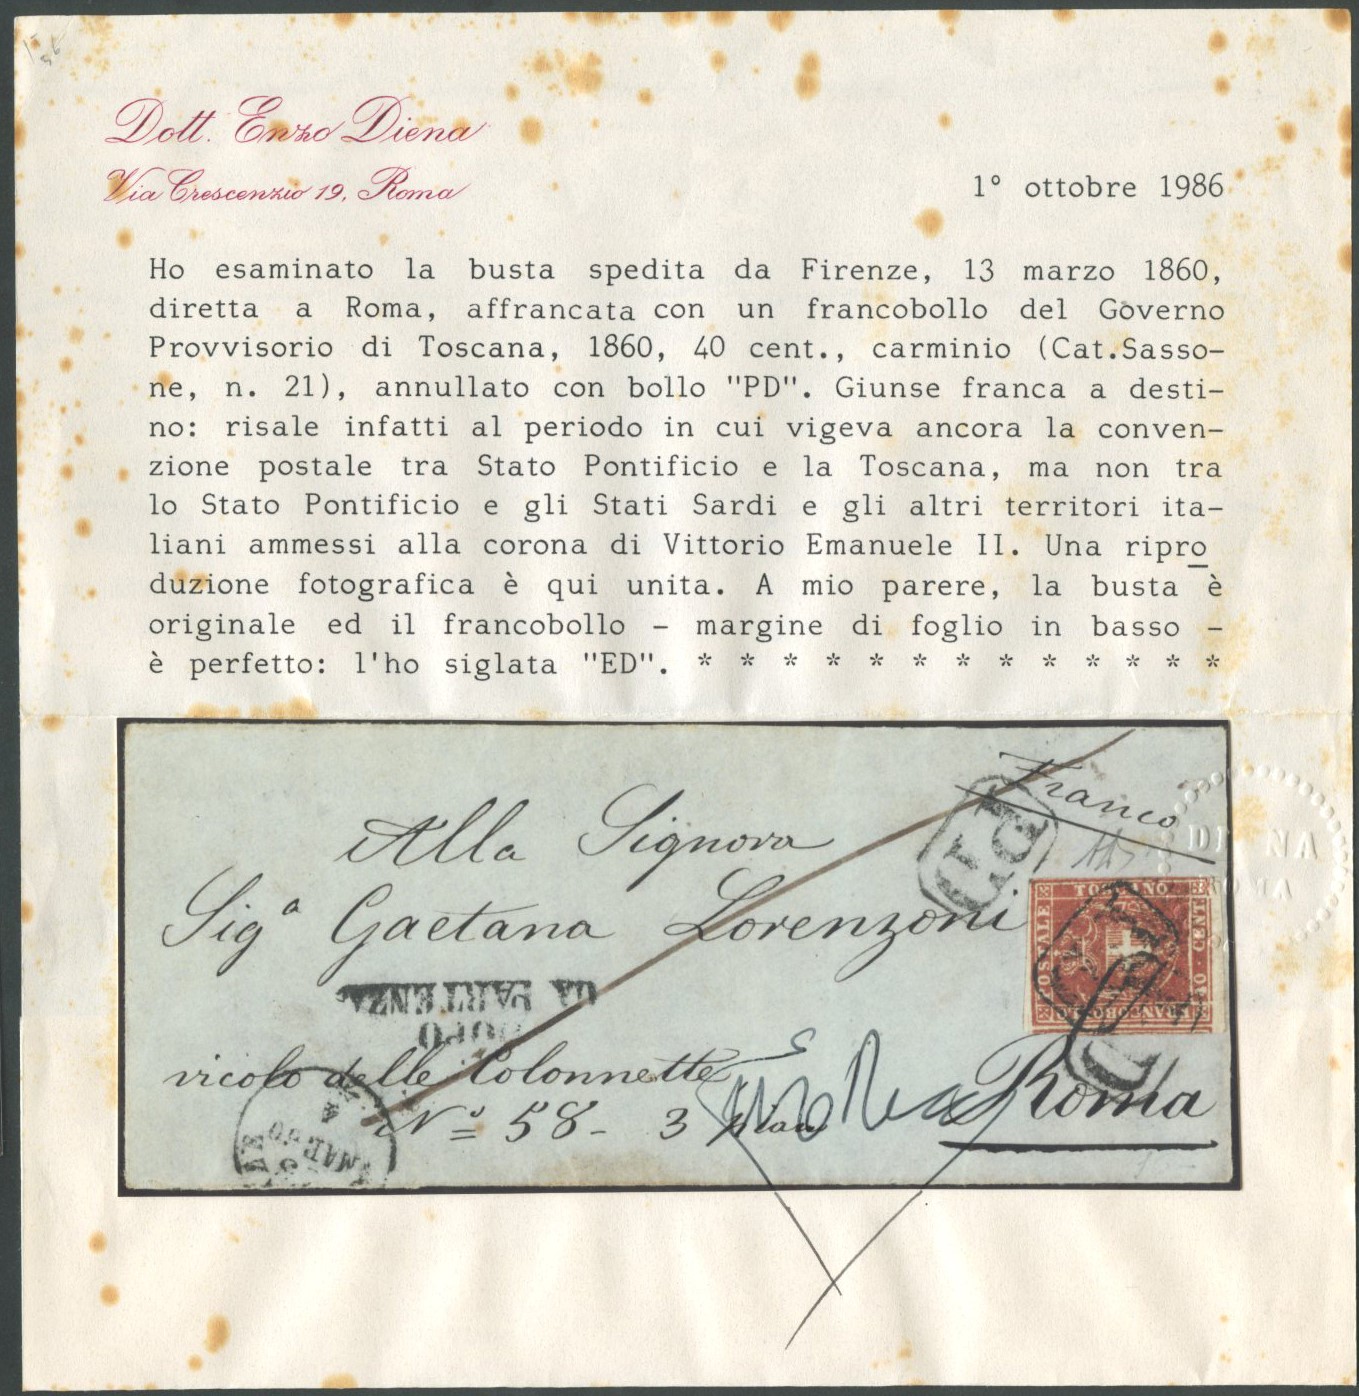 Dott. Enzo Diena
Via Crescenzio 19, Roma
1° ottobre 1986
Ho esaminato la busta spedita da Firenze, 13 marzo 1860,
diretta a Roma, affrancata con un francobollo del Governo
Provvisorio di Toscana, 1860, 40 cent., carminio (Cat.Sasso-
ne, n. 21), annullato con bollo "PD". Giunse franca a desti-
no: risale infatti al periodo in cui vigeva ancora la conven-
zione postale tra Stato Pontificio e la Toscana, ma non tra
lo Stato Pontificio e gli Stati Sardi e gli altri territori ita-
liani ammessi alla corona di Vittorio Emanuele II. Una ripro
duzione fotografica è qui unita. A mio parere, la busta è
originale ed il francobollo - margine di foglio in basso -
è perfetto: l'ho siglata "ED". * * * * * * * * * * * * *
Franco
Alla Signora
Sigª Gaetana Lorenzoni
PD
TOSCANO
POSTALE
CENT
DOPO
LA PARTENZA
vicolo delle Colonnette
Nº 58 - 3
Roma
MAR